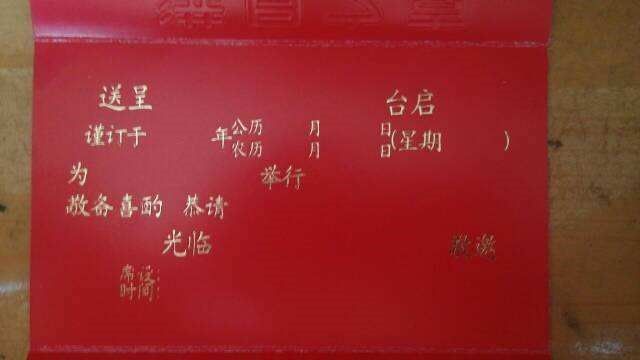 送呈 台启
谨订于 年 公历 月 日 (星期 )
农历 月 日
为 举行
敬备喜酌 恭请
光临 敬邀
席设:
时间: